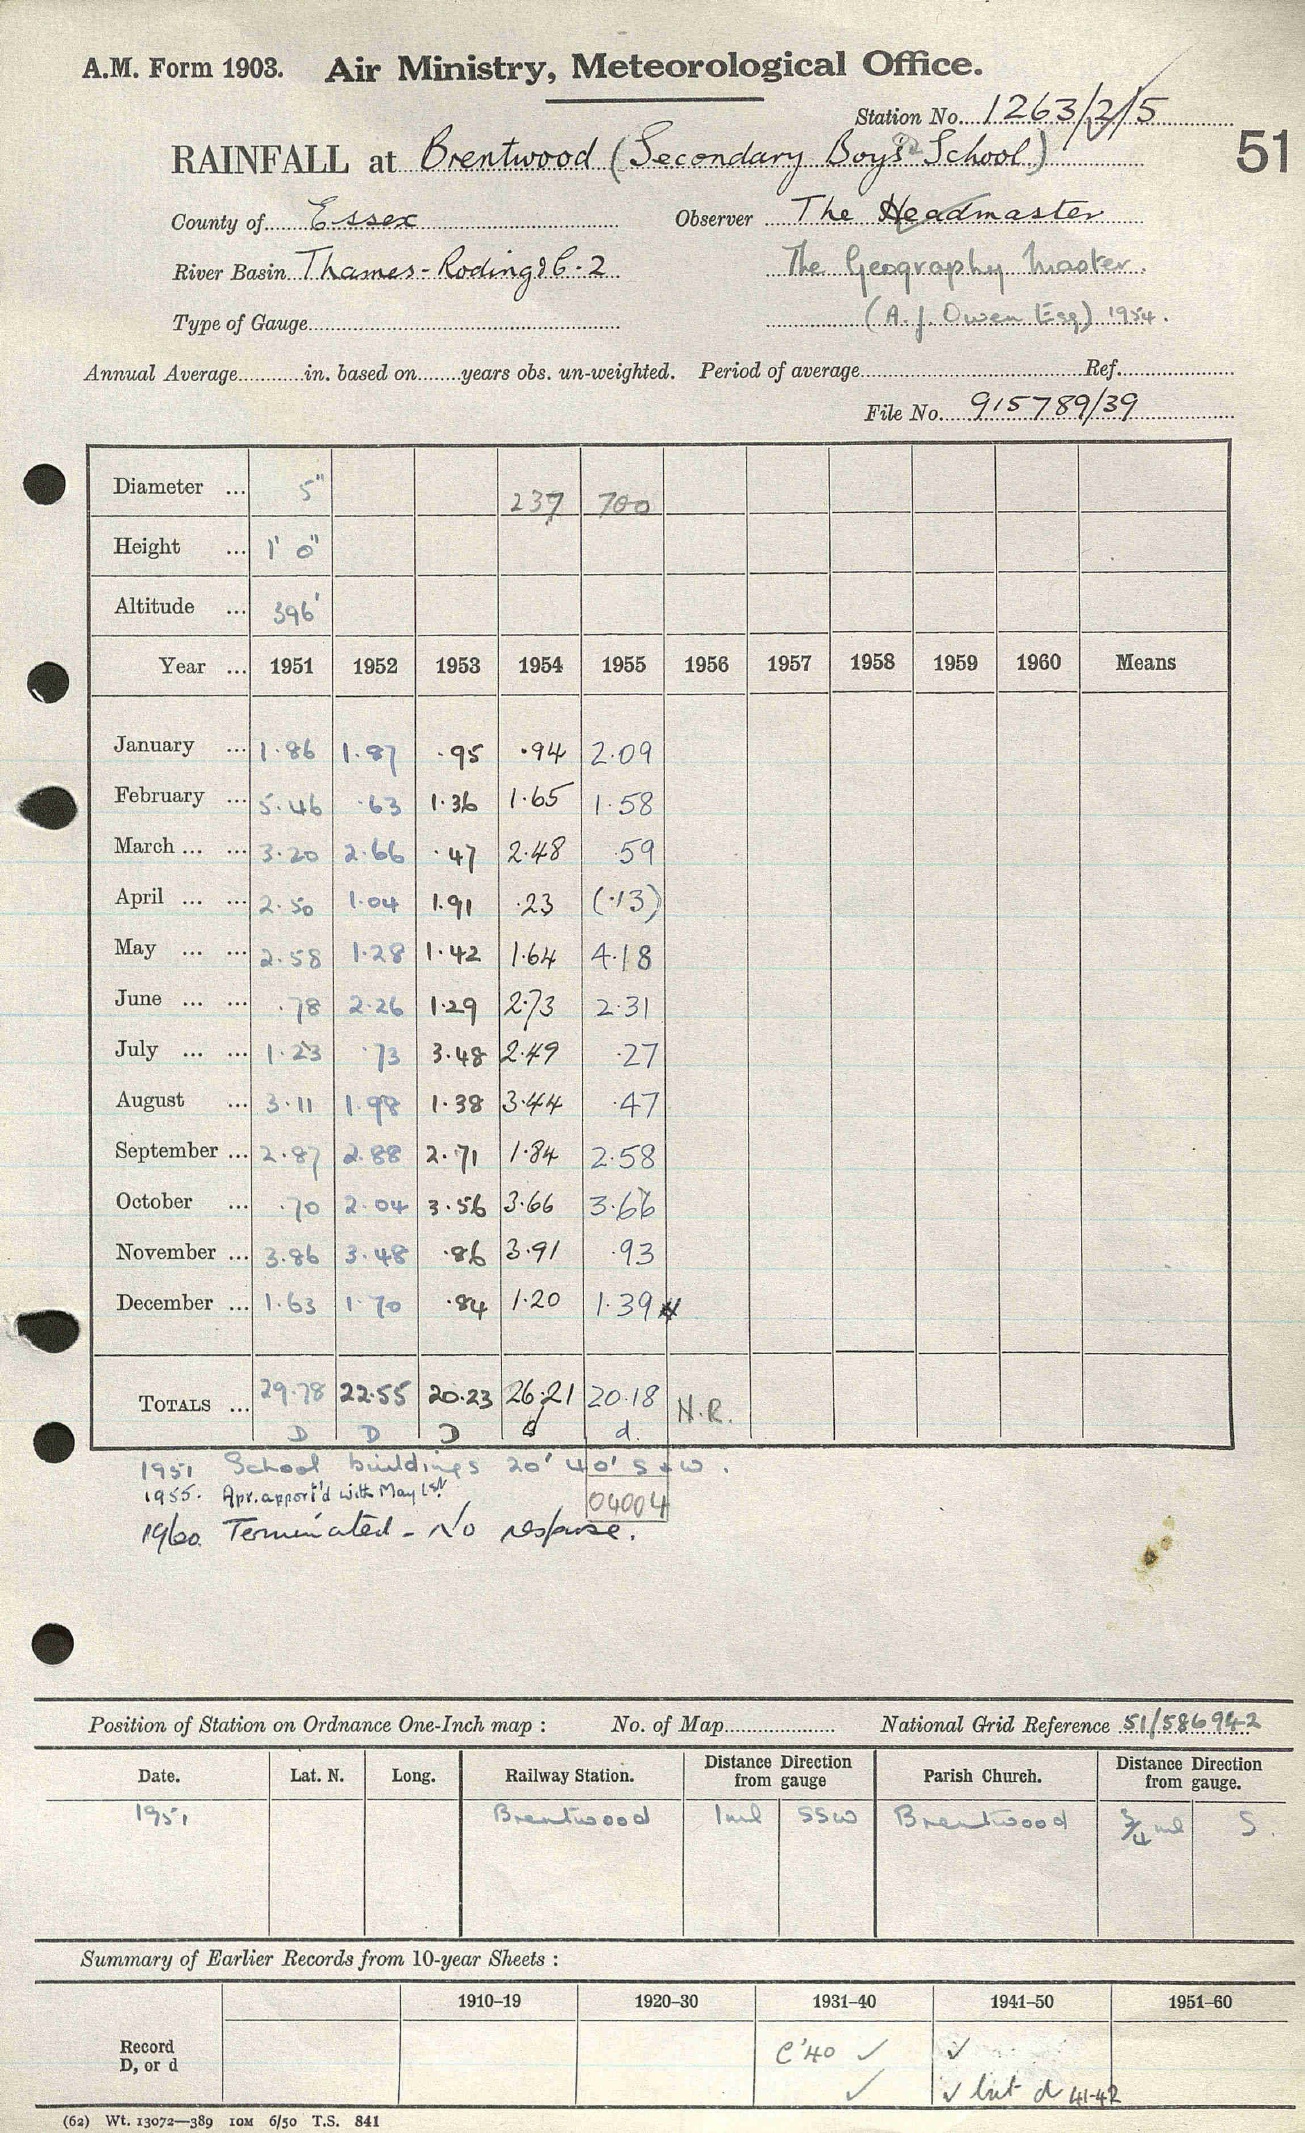 A.M. Form 1903. Air Ministry, Meteorological Office.
Station No. 1263/2/5
51
RAINFALL at Brentwood (Secondary Boys School)
County of Essex Observer The Headmaster
River Basin Thames - Roding &c - 2 The Geography Master.
Type of Gauge (A.J. Owen Esq) 1954.
Annual Average in. based on years obs. un-weighted. Period of average Ref.
File No. 915789/39
Diameter ... 5" 237 700
Height ... 1' 0"
Altitude ... 396'
Year ... 1951 1952 1953 1954 1955 1956 1957 1958 1959 1960 Means
January ... 1.86 1.87 .95 .94 2.09
February ... 5.46 .63 1.36 1.65 1.58
March ... ... 3.20 2.66 .47 2.48 .59
April ... ... 2.50 1.04 1.91 .23 (.13)
May ... ... 2.58 1.28 1.42 1.64 4.18
June ... ... .78 2.26 1.29 2.73 2.31
July ... ... 1.23 .73 3.48 2.49 .27
August ... 3.11 1.98 1.38 3.44 .47
September ... 2.87 2.88 2.71 1.84 2.58
October ... .70 2.04 3.56 3.66 3.66
November ... 3.86 3.48 .86 3.91 .93
December ... 1.63 1.70 .84 1.20 1.39
TOTALS ... 29.78 22.55 20.23 26.21 20.18 N.R.
D D D d.
1951 School buildings 20' 40' S & W.
1955. Apr. apport'd with May 1st
04004
1960. Terminated - No response.
Position of Station on Ordnance One-Inch map : No. of Map National Grid Reference 51/586942
Date. Lat. N. Long. Railway Station. Distance Direction from gauge Parish Church. Distance Direction from gauge.
1951 Brentwood 1 ml SSW Brentwood 3/4 ml S.
Summary of Earlier Records from 10-year Sheets :
1910–19 1920–30 1931–40 1941–50 1951–60
Record D, or d
C'40 ✓ ✓
✓ ✓ but d 41-42
(62) Wt. 13072—389 10M 6/50 T.S. 841